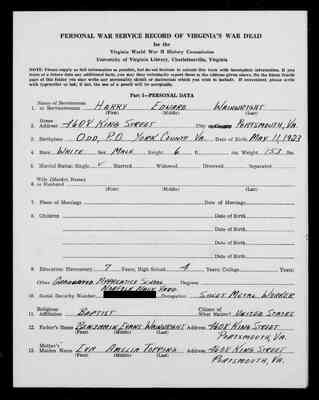 PERSONAL WAR SERVICE RECORD OF VIRGINIA'S WAR DEAD
for the
Virginia World War II History Commission
University of Virginia Library, Charlottesville, Virginia
NOTE: Please supply as full information as possible, but do not hesitate to submit this form with incomplete information. If you
learn of a future date any additional facts, you may then voluntarily report them to the address given above. On the blank fourth
page of this folder you may write any personality sketch or materials which you wish to include. If convenient, please write
with typewriter or ink; if not, the use of a pencil will be acceptable.
Part I—PERSONAL DATA
Name of Serviceman
1. or Servicewoman HARRY EDWARD WAINWRIGHT
(First) (Middle) (Last)
Home
2. Address 4608 KING STREET City PORTSMOUTH, VA.
3. Birthplace ODD, P.O. YORK COUNTY VA. Date of Birth MAY 11, 1923
4. Race WHITE Sex MALE Height 6 ft. in. Weight 153 lbs.
5. Marital Status: Single ✓ Married Widowed Divorced Separated
Wife (Maiden Name)
6. or Husband
(First) (Middle) (Last)
7. Place of Marriage Date of Marriage
8. Children Date of Birth
Date of Birth
Date of Birth
Date of Birth
9. Education: Elementary 7 Years; High School 4 Years; College Years;
Other GRADUATED APPRENTICE SCHOOL Degrees
NORFOLK NAVY YARD
10. Social Security Number Occupation SHEET METAL WORKER
Religious Citizen of
11. Affiliation BAPTIST What Nation? UNITED STATES
12. Father's Name BENJAMIN EVANS WAINWRIGHT Address 4608 KING STREET
(First) (Middle) (Last) PORTSMOUTH, VA.
Mother's
13. Maiden Name EVA AMELIA TOPPING Address 4608 KING STREET
(First) (Middle) (Last) PORTSMOUTH, VA.